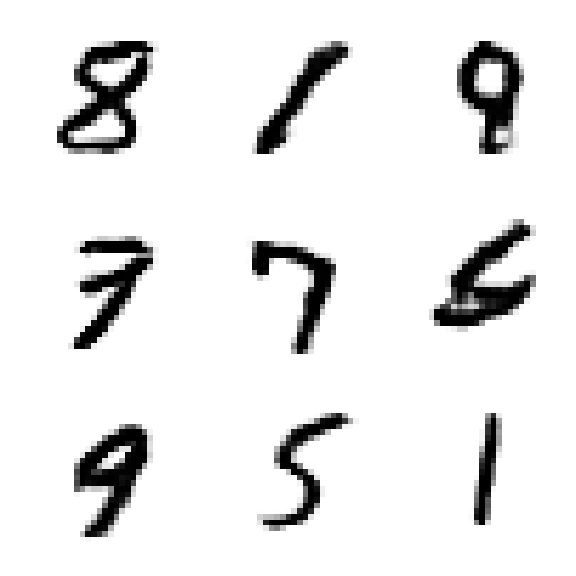 8 1 9
7 7 6
9 5 1